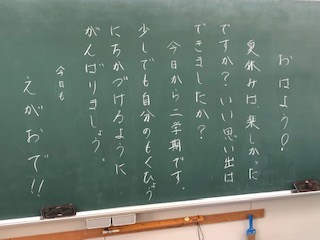 おはよう!
夏休みは、楽しかった
ですか?いい思い出は
できましたか?
今日から二学期です。
少しでも自分のもくひょう
にちかづけるように
がんばりましょう。
今日も
えがおで!!